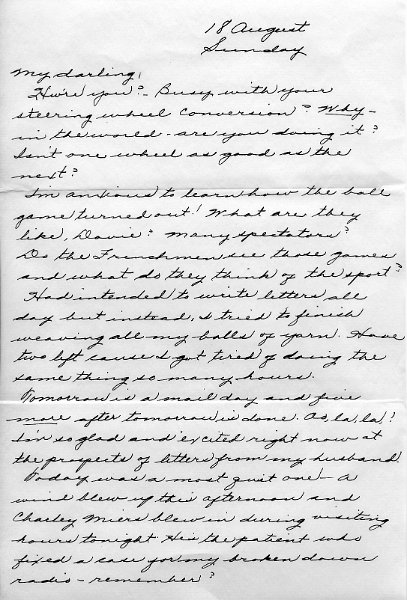 18 August
Sunday
My darling,
How're you? - Busy with your
steering wheel conversion? Why -
in the world - are you doing it?
Isn't one wheel as good as the
next?
I'm anxious to learn how the ball
game turned out! What are they
like, Davie? Many spectators?
Do the Frenchmen see those games
and what do they think of the sport?
Had intended to write letters all
day but instead, I tried to finish
weaving all my balls of yarn. Have
two left cause I got tired of doing the
same thing so many hours.
Tomorrow is a mail day and five
more after tomorrow is done. Oo, la, la!
I'm so glad and excited right now at
the prospects of letters from my husband!
Today was a most quiet one! - A
wind blew up this afternoon and
Charley Miers blew in during visiting
hours tonight. He's the patient who
fixed a case for my broken down
radio - remember?